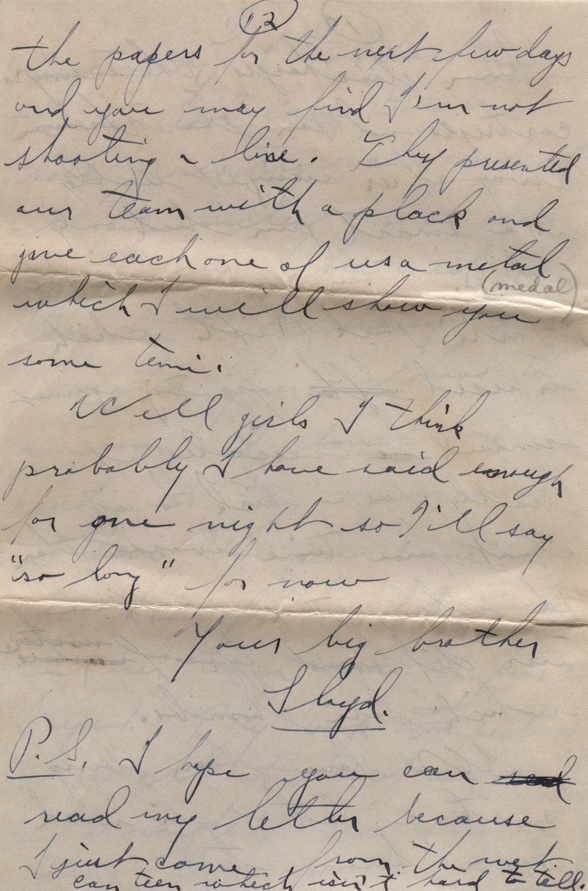 12
the papers for the next few days
and you may find I'm not
shooting a line. They presented
our team with a plack and
give each one of us a metal
(medal)
which I will show you
some time.
Well girls I think
probably I have said enough
for one night so I'll say
"so long" for now
Your big brother
Lloyd.
P.S. I hope you can red
read my letter because
I just came from the wet
canteen which isn't hard to tell.